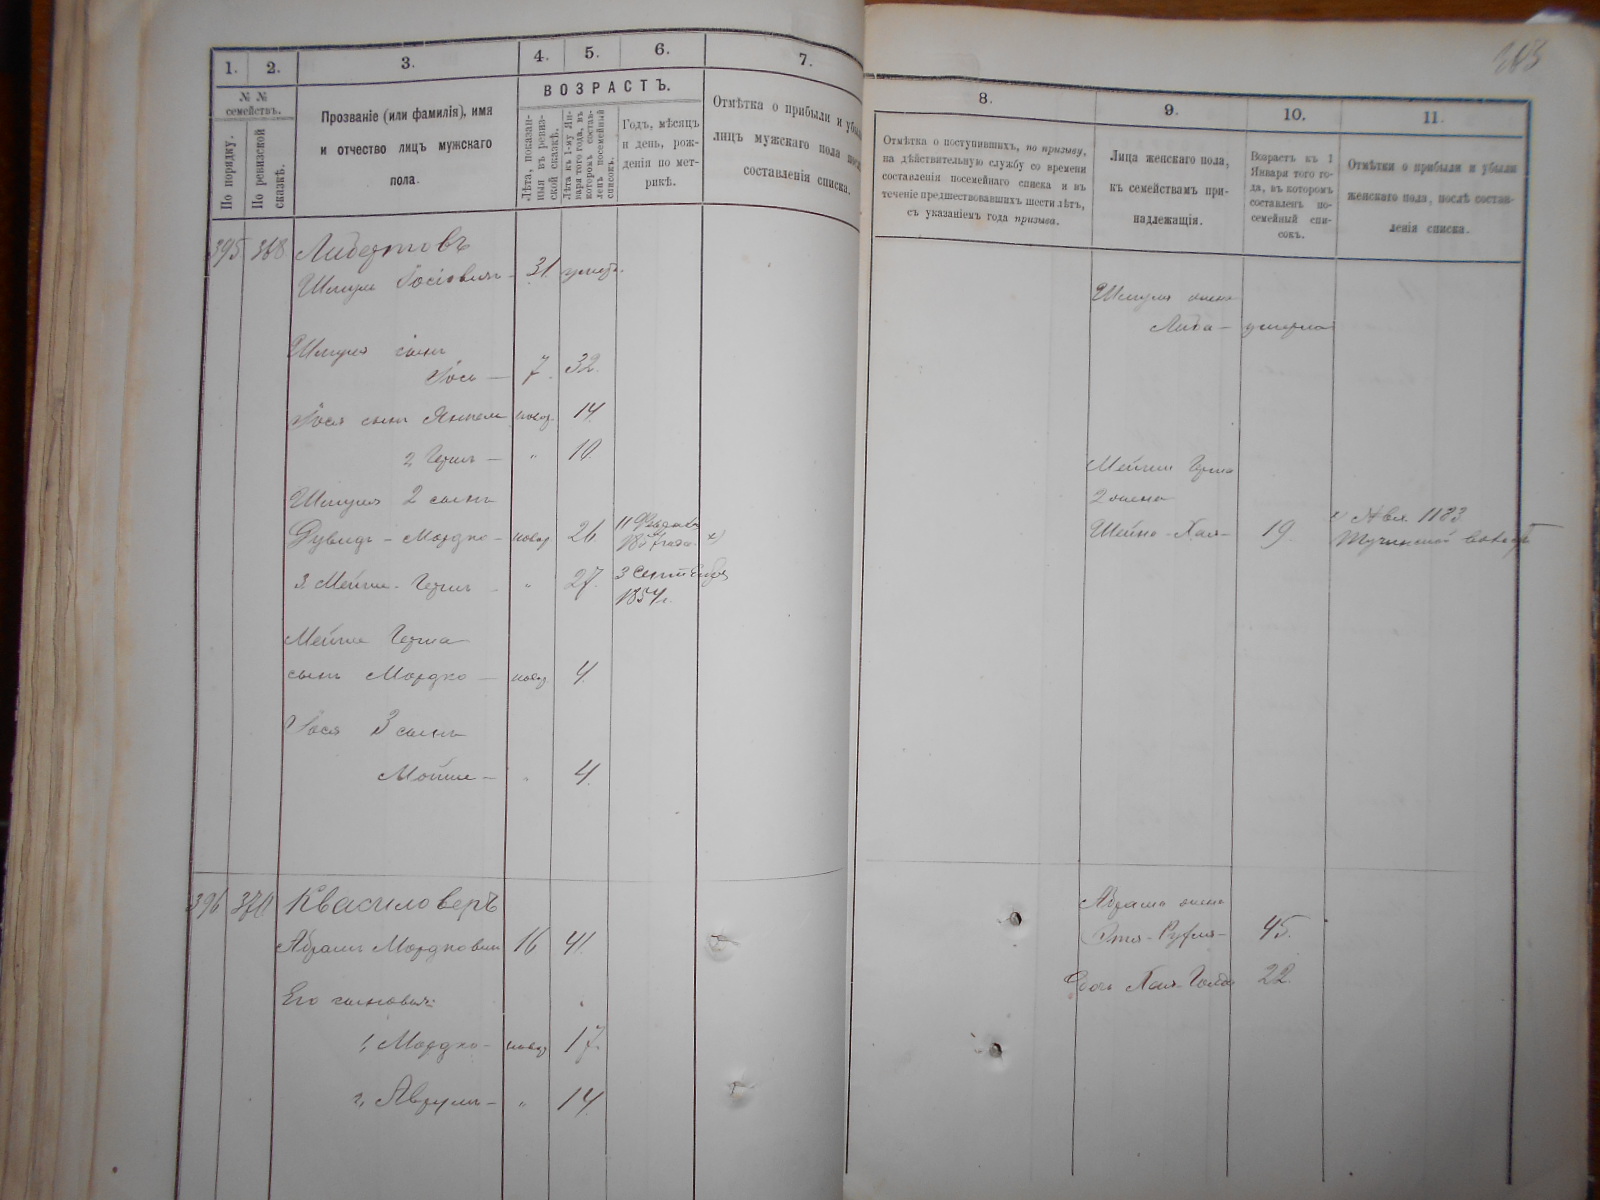 263
1.
2.
3.
4.
5.
6.
7.
№ №
семействъ.
По порядку.
По ревизской
сказкѣ.
Прозваніе (или фамилія), имя
и отчество лицъ мужскаго
пола.
ВОЗРАСТЪ.
Лѣта, показан-
ныя въ ревиз-
ской сказкѣ.
Лѣта къ 1-му Ян-
варя того года, въ
которомъ состав-
ленъ посемейный
списокъ.
Годъ, мѣсяцъ
и день, рож-
денія по мет-
рикѣ.
Отмѣтка о прибыли и убыли
лицъ мужскаго пола послѣ
составленія списка.
8.
9.
10.
11.
Отмѣтка о поступившихъ, по призыву,
на дѣйствительную службу со времени
составленія посемейнаго списка и въ
теченіе предшествовавшихъ шести лѣтъ,
съ указаніемъ года призыва.
Лица женскаго пола,
къ семействамъ при-
надлежащія.
Возрастъ къ 1
Января того го-
да, въ которомъ
составленъ по-
семейный спи-
сокъ.
Отмѣтки о прибыли и убыли
женскаго пола, послѣ состав-
ленія списка.
395 368 Либертовъ
Шмуль Іосіовичъ - 31 умеръ.
Шмуля жена
Либа - умерла
Шмуля сынъ
Іось - 7. 32.
Іося сынъ Янкель новор. 14
2, Гершъ - " 10.
Мейши Герша
жена
Шмуля 2 сынъ
Дувидъ-Мордко- новор 26 11
Шейна-Хая- 19.
3 Мейше-Гершъ - " 27. 3 Сентября
1854 г.
Мейше Герша
сынъ Мордко - новор 4.
Іося 3 сынъ
Мойше - " 4.
396 370 Квасиловеръ
Абрамъ Мордковичъ 16 41.
Абрама жена
45.
Его сыновья:
дочь Хая-Голда 22.
1, Мордко- новор 17.
2, - " 14